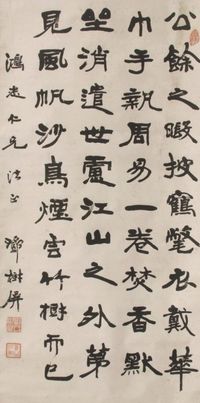 公餘之暇披鶴氅衣戴華
巾手執周易一卷焚香默
坐消遣世慮江山之外第
見風帆沙鳥煙雲竹樹而已
鴻仁兄 法正 樹屏